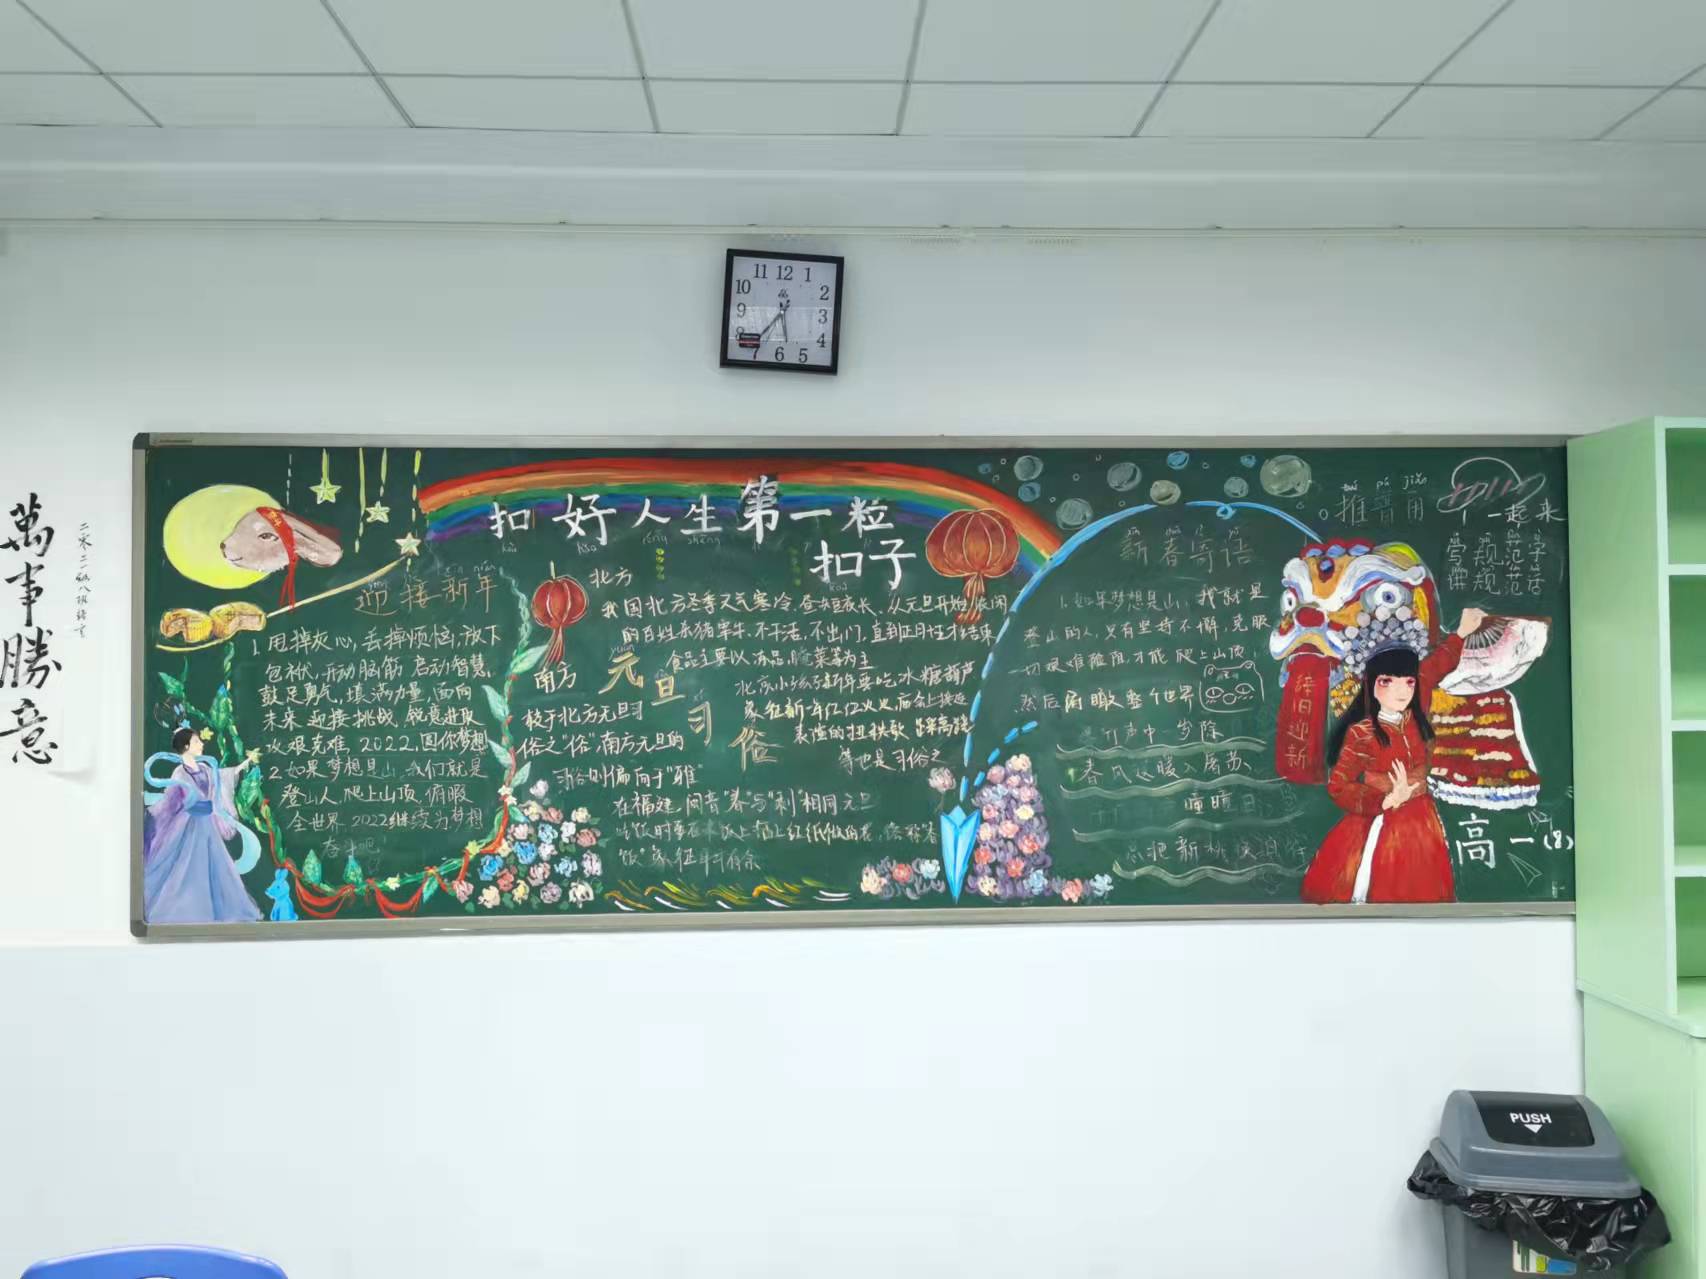 萬事勝意
二零二二级八班语言
11 12 1
10 2
9 3
8 4
7 6 5
扣好人生第一粒
扣子
迎接新年
1. 甩掉灰心,丢掉烦恼,放下
包袱,开动脑筋 启动智慧,
鼓足勇气,填满力量,面向
未来 迎接挑战,锐意进取
攻艰克难, 2022,圆你梦想
2.如果梦想是山,我们就是
登山人,爬上山顶,俯瞰
全世界 2022继续为梦想
奋斗吧!
北方
我国北方冬季天气寒冷,昼短夜长,从元旦开始
的百姓杀猪宰牛,不干活,不出门,直到正月
食品主要以冻品,腌菜等为主
北京小孩子新年要吃冰糖葫芦
象征新年红红火火 庙会上
表演的扭秧歌 踩高跷
等也是习俗之一
元旦习俗
yuán
南方
较于北方元旦习
俗之“俗”,南方元旦的
习俗则偏向于“雅”
在福建,闽音“春”与“剩”相同 元旦
饭”象征年年有余
新春寄语
1.如果梦想是山,我就是
登山的人,只有坚持不懈,克服
一切艰难险阻,才能爬上山顶,
然后俯瞰整个世界
爆竹声中一岁除
春风送暖入屠苏
曈曈日
总把新桃换旧符
tuī pǔ jiǎo
推普用
一起来
写规范字
讲规范话
辞旧迎新
高一(8)
PUSH